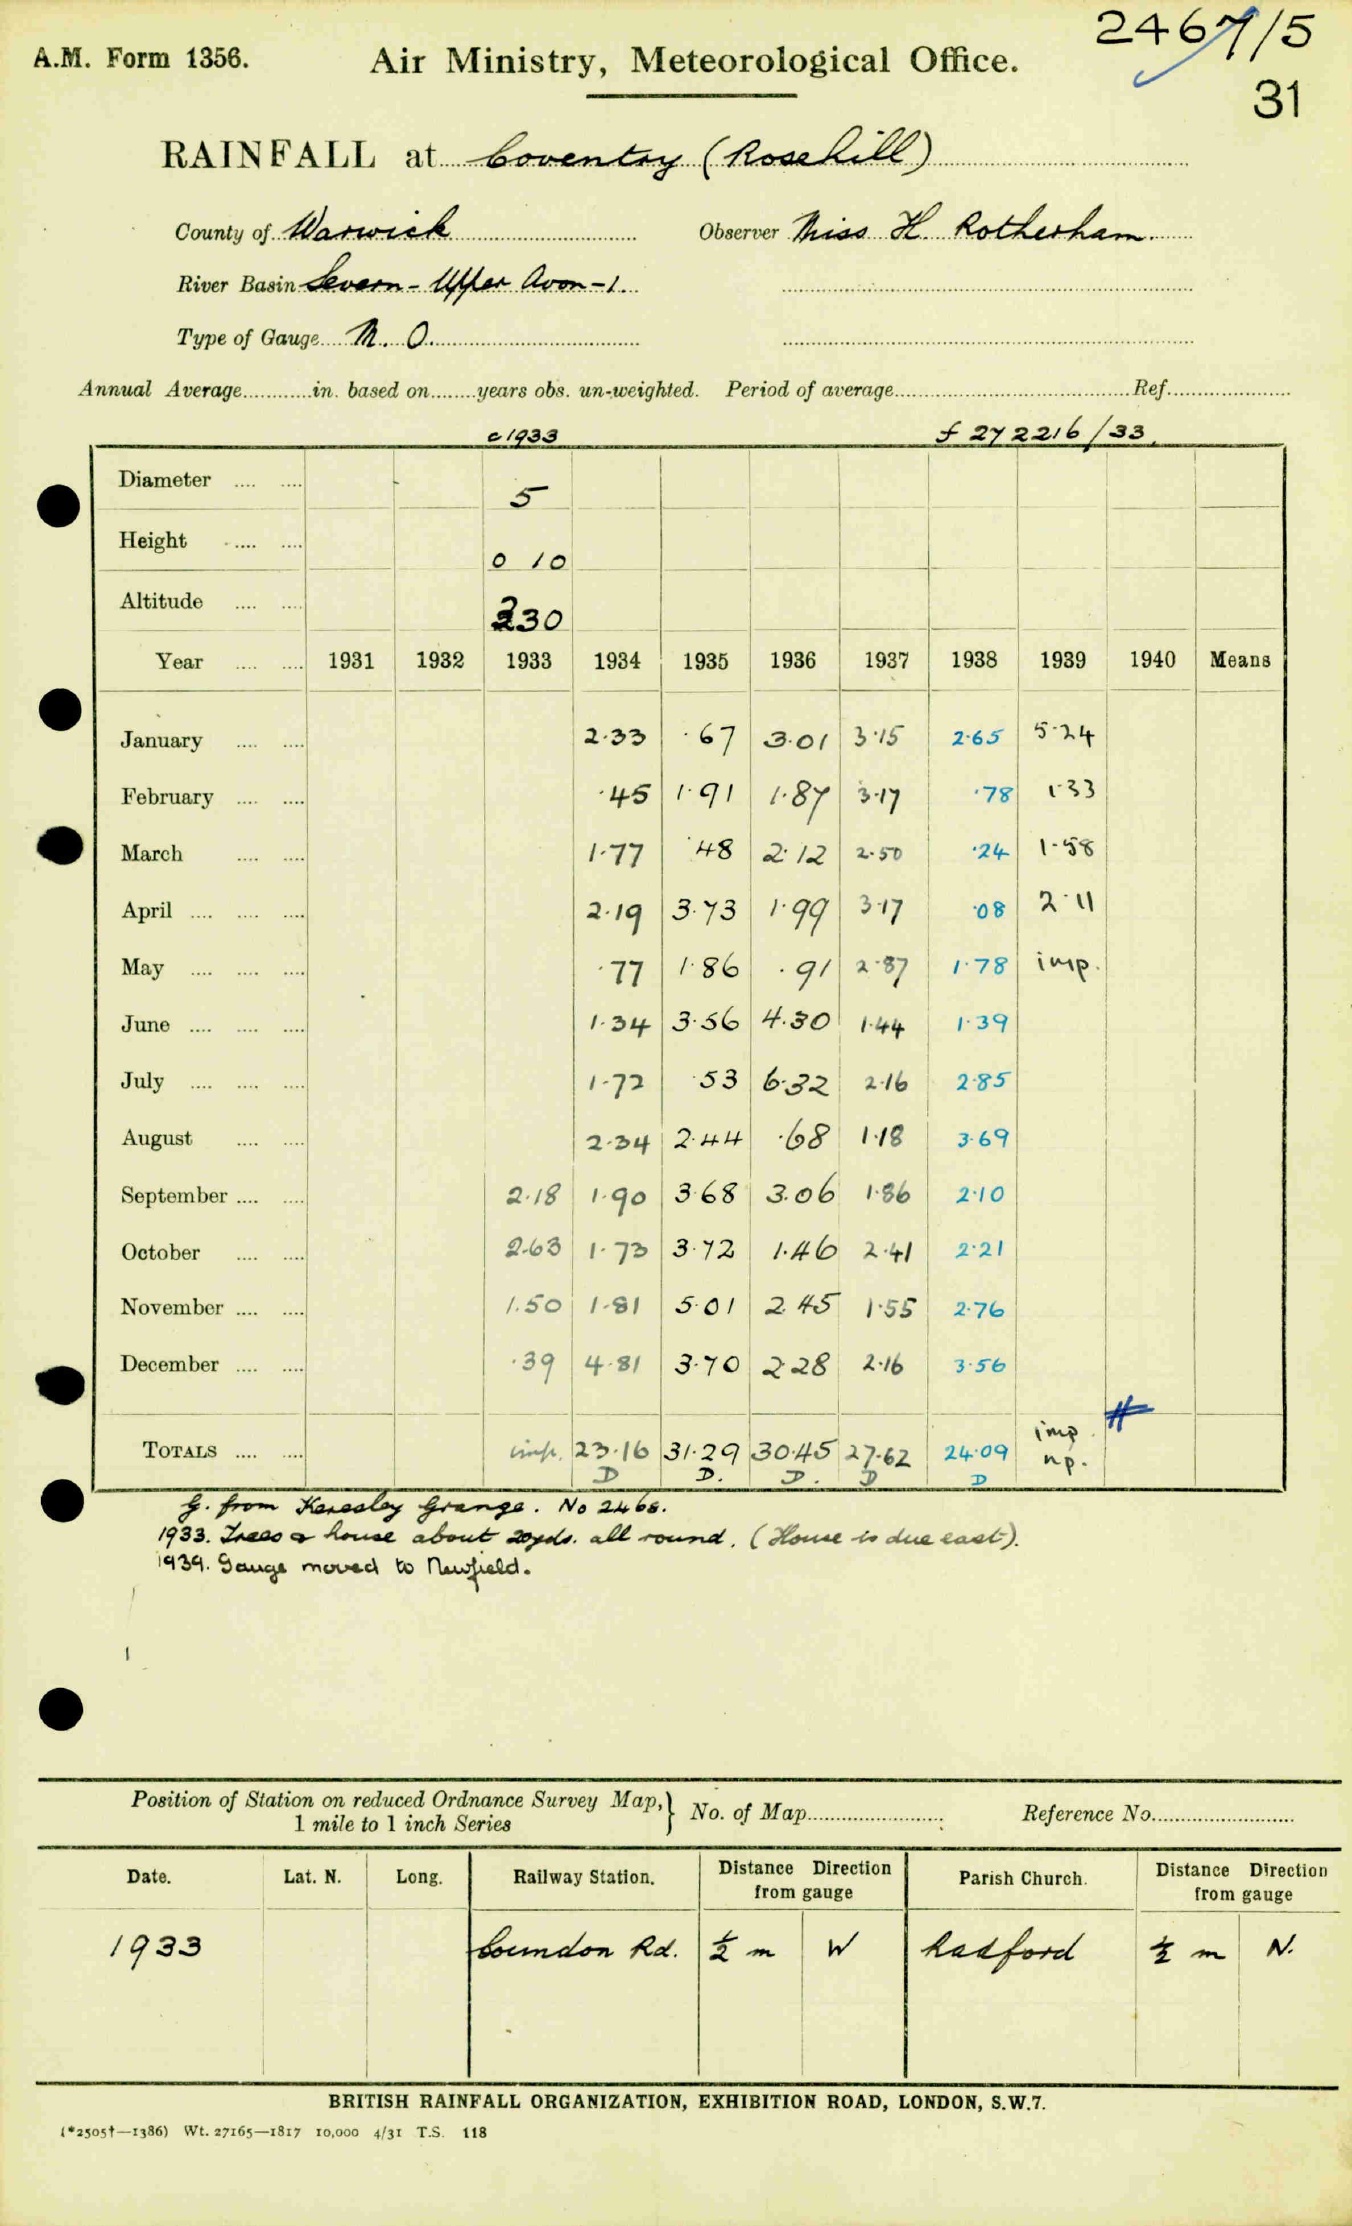 2467/5
A.M. Form 1356. Air Ministry, Meteorological Office.
31
RAINFALL at Coventry (Rosehill)
County of Warwick Observer Miss H. Rotherham.
River Basin Severn - Upper Avon - 1.
Type of Gauge M. O.
Annual Average in. based on years obs. un-weighted. Period of average Ref.
c 1933 f 272216/33.
Diameter 5
Height 0 10
Altitude 330
Year 1931 1932 1933 1934 1935 1936 1937 1938 1939 1940 Means
January 2.33 .67 3.01 3.15 2.65 5.24
February .45 1.91 1.87 3.17 .78 1.33
March 1.77 .48 2.12 2.50 .24 1.58
April 2.19 3.73 1.99 3.17 .08 2.11
May .77 1.86 .91 2.87 1.78 imp.
June 1.34 3.56 4.30 1.44 1.39
July 1.72 .53 6.32 2.16 2.85
August 2.34 2.44 .68 1.18 3.69
September 2.18 1.90 3.68 3.06 1.86 2.10
October 2.63 1.73 3.72 1.46 2.41 2.21
November 1.50 1.81 5.01 2.45 1.55 2.76
December .39 4.81 3.70 2.28 2.16 3.56
TOTALS imp. 23.16 31.29 30.45 27.62 24.09 imp. np.
D D. D. D D
G. from Keresley Grange. No 2468.
1933. Trees & house about 20yds. all round. (House is due east).
1939. Gauge moved to Newfield.
Position of Station on reduced Ordnance Survey Map, } No. of Map Reference No.
1 mile to 1 inch Series
Date. Lat. N. Long. Railway Station. Distance Direction from gauge Parish Church. Distance Direction from gauge
1933 Coundon Rd. ½ m W Radford ½ m N.
BRITISH RAINFALL ORGANIZATION, EXHIBITION ROAD, LONDON, S.W.7.
(*2505†—1386) Wt. 27165—1817 10,000 4/31 T.S. 118